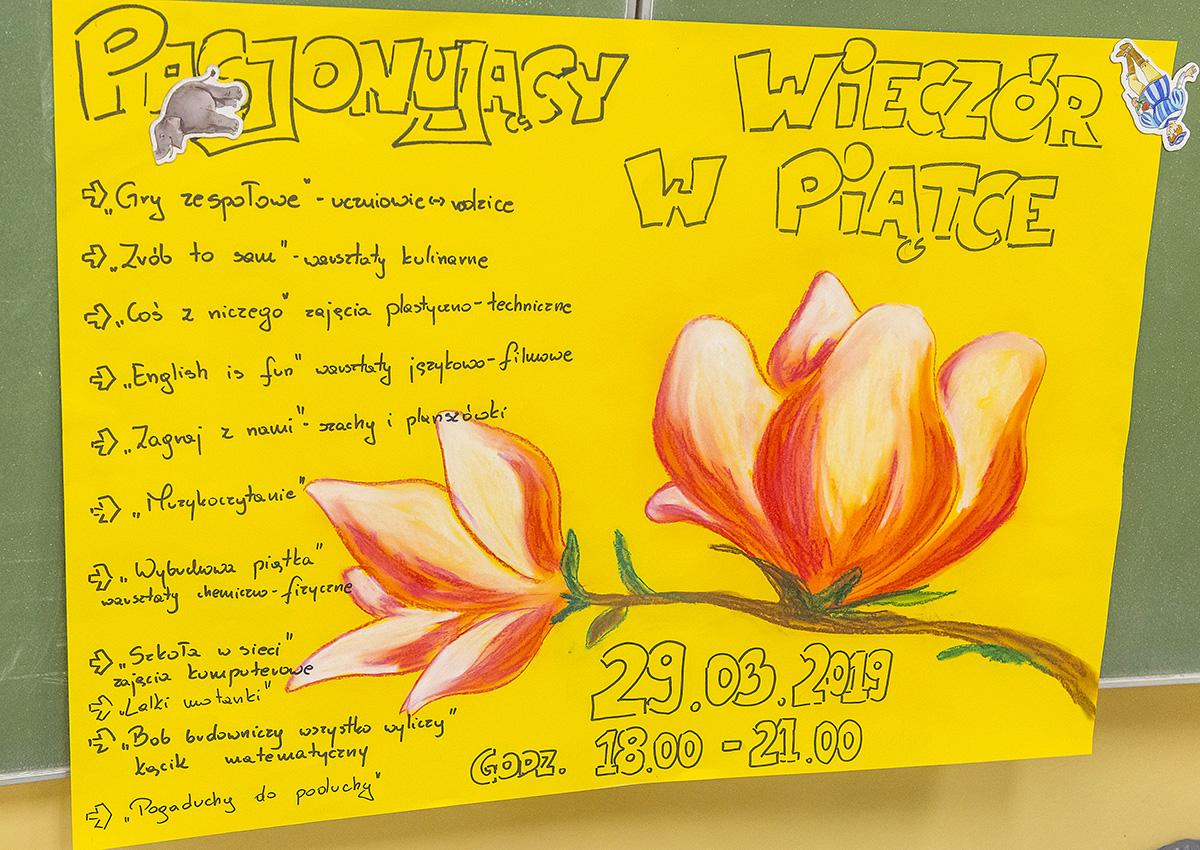 PASJONUJĄCY WIECZÓR
W PIĄTEK
„Gry zespołowe" - uczniowie ↔ rodzice
„Zrób to sam" - warsztaty kulinarne
„Coś z niczego" zajęcia plastyczno-techniczne
„English is fun" warsztaty językowo-filmowe
„Zagraj z nami" - szachy i planszówki
„Muzykoczytanie"
„Wybuchowa piątka"
warsztaty chemiczno-fizyczne
„Szkoła w sieci"
zajęcia komputerowe
„Lalki motanki"
„Bob budowniczy wszystko wyliczy"
kącik matematyczny
„Pogaduchy do poduchy"
29.03.2019
GODZ. 18.00 - 21.00